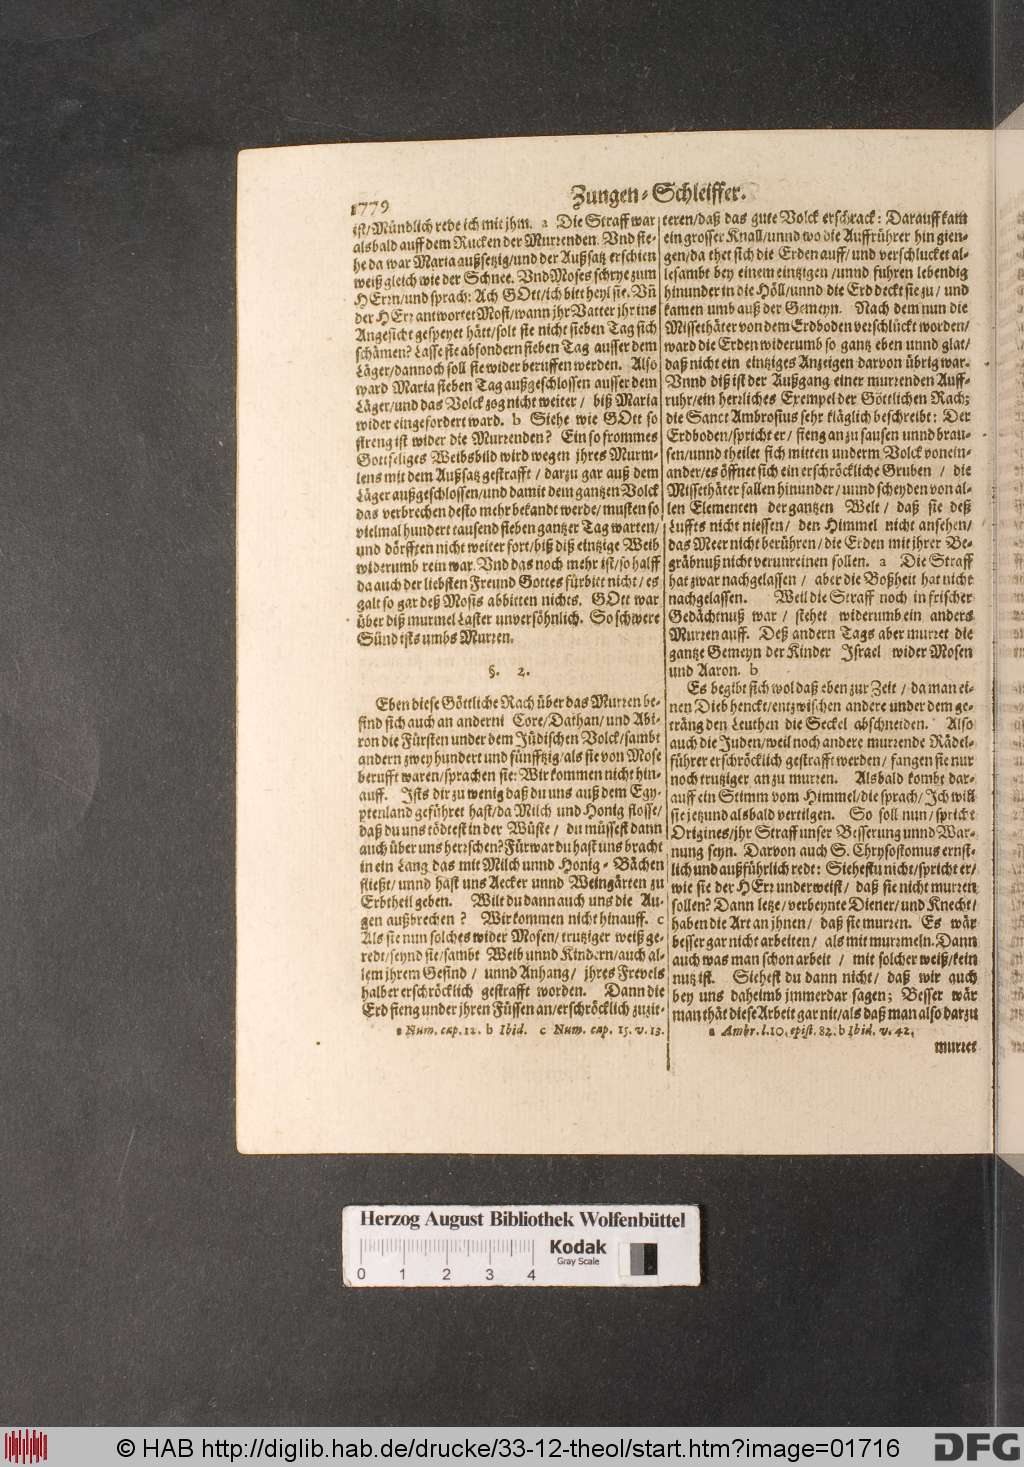 1779
Zungen-Schleiffer.
ist/Mündlich rede ich mit jhm. a Die Straff war
alsbald auff dem Rucken der Murrenden. Vnd sie-
he da war Maria außsetzig/und der Außsatz erschien
weiß gleich wie der Schnee. Vnd Moses schrye zum
HErrn/und sprach: Ach GOtt/ich bitt heyl sie. Vñ
der HErr antwortet Mosi/wann jhr Vatter jhr ins
Angesicht gespeyet hätt/solt sie nicht sieben Tag sich
schämen? Lasse sie absondern sieben Tag ausser dem
Läger/dannoch soll sie wider beruffen werden. Also
ward Maria sieben Tag außgeschlossen ausser dem
Läger/und das Volck zog nicht weiter/ biß Maria
wider eingefordert ward. b Siehe wie GOtt so
streng ist wider die Murrenden? Ein so frommes
Gottseliges Weibsbild wird wegen jhres Murm-
lens mit dem Außsatz gestrafft/ darzu gar auß dem
Läger außgeschlossen/und damit dem gantzen Volck
das verbrechen desto mehr bekandt werde/musten so
vielmal hundert tausend sieben gantzer Tag warten/
und dörfften nicht weiter fort/biß diß eintzige Weib
widerumb rein war. Vnd das noch mehr ist/so halff
da auch der liebsten Freund Gottes fürbitt nicht/es
galt so gar deß Mosis abbitten nichts. GOtt war
über diß murmel Laster unversöhnlich. So schwere
Sünd ists umbs Murren.
§. 2.
Eben diese Göttliche Rach über das Murren be-
find sich auch an anderni Core/Dathan/und Abi-
ron die Fürsten under dem Jüdischen Volck/sambt
andern zwey hundert und fünfftzig/als sie von Mose
berufft waren/sprachen sie: Wir kommen nicht hin-
auff. Ists dir zu wenig daß du uns auß dem Egy-
ptenland geführet hast/da Milch und Honig flosse/
daß du uns tödtest in der Wüste/ du müssest dann
auch über uns herrschen? Fürwar du hast uns bracht
in ein Land das mit Milch unnd Honig-Bächen
fließt/unnd hast uns Aecker unnd Weingärten zu
Erbtheil geben. Wilt du dann auch uns die Au-
gen außbrechen? Wir kommen nicht hinauff. c
Als sie nun solches wider Mosen/trutziger weiß ge-
redt/seynd sie/sambt Weib unnd Kindern/auch al-
lem jhrem Gesind/ unnd Anhang/ jhres Frevels
halber erschröcklich gestrafft worden. Dann die
Erd fieng under jhren Füssen an/erschröcklich zu zit-
a Num. cap. 12. b Ibid. c Num. cap. 15. v. 13.
teren/daß das gute Volck erschrack: Darauff kam
ein grosser Knall/unnd wo die Auffrührer hin gien-
gen/da thet sich die Erden auff/und verschlucket al-
lesambt bey einem eintzigen/unnd fuhren lebendig
hinunder in die Höll/unnd die Erd deckt sie zu/ und
kamen umb auß der Gemeyn. Nach dem nun die
Missethäter von dem Erdboden verschlückt worden/
ward die Erden widerumb so gantz eben unnd glat/
daß nicht ein eintziges Anzeigen darvon übrig war.
Vnnd diß ist der Außgang einer murrenden Auff-
ruhr/ein herrliches Exempel der Göttlichen Rach;
die Sanct Ambrosius sehr kläglich beschreibt: Der
Erdboden/spricht er/ fieng an zu sausen unnd brau-
sen/unnd theilet sich mitten underm Volck vonein-
ander/es öffnet sich ein erschröckliche Gruben/ die
Missethäter fallen hinunder/unnd scheyden von al-
len Elementen der gantzen Welt/ daß sie deß
Luffts nicht niessen/ den Himmel nicht ansehen/
das Meer nicht berühren/die Erden mit jhrer Be-
gräbnuß nicht verunreinen sollen. a Die Straff
hat zwar nachgelassen/ aber die Boßheit hat nicht
nachgelassen. Weil die Straff noch in frischer
Gedächtnuß war/ stehet widerumb ein anders
Murren auff. Deß andern Tags aber murret die
gantze Gemeyn der Kinder Israel wider Mosen
und Aaron. b
Es begibt sich wol daß eben zur Zeit/da man ei-
nen Dieb henckt/entzwischen andere under dem ge-
träng den Leuthen die Seckel abschneiden. Also
auch die Juden/weil noch andere murrende Rädel-
führer erschröcklich gestrafft werden/ fangen sie nur
noch trutziger an zu murren. Alsbald kombt dar-
auff ein Stimm vom Himmel/die sprach/Ich will
sie jetzund alsbald vertilgen. So soll nun/spricht
Origines/jhr Straff unser Besserung unnd War-
nung seyn. Darvon auch S. Chrysostomus ernst-
lich und außführlich redt: Siehestu nicht/spricht er/
wie sie der HErr underweist/ daß sie nicht murren
sollen? Dann letze/verbeynte Diener/und Knecht/
haben die Art an jhnen/ daß sie murren. Es wär
besser gar nicht arbeiten/ als mit murmeln. Dann
auch was man schon arbeit/ mit solcher weiß/kein
nutz ist. Siehest du dann nicht/ daß wir auch
bey uns daheimb jmmerdar sagen; Besser wär
man thät diese Arbeit gar nit/als daß man also darzu
a Ambr. l. 10. epist. 82. b Ibid. v. 42.
murret
Herzog August Bibliothek Wolfenbüttel
0 1 2 3 4
Kodak
Gray Scale
© HAB http://diglib.hab.de/drucke/33-12-theol/start.htm?image=01716
DFG